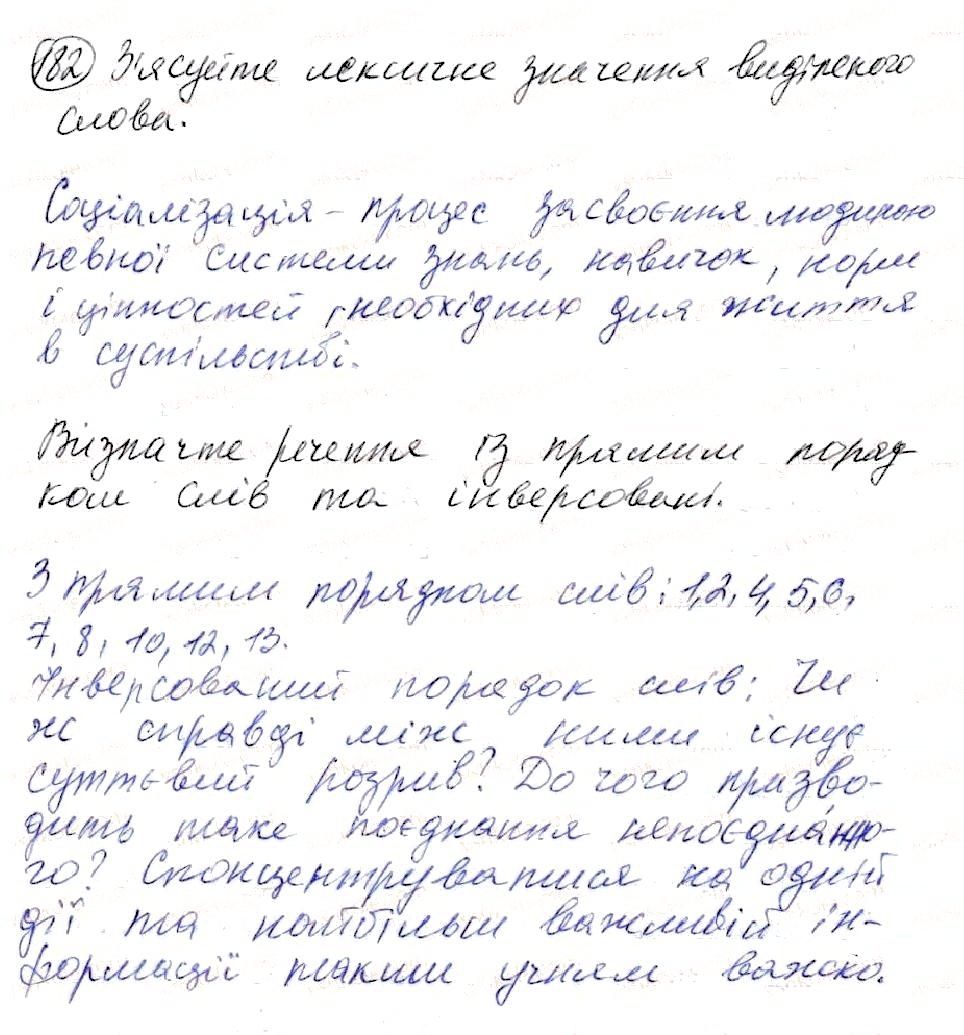 182 З'ясуйте лексичне значення виділеного
слова.
Соціалізація – процес засвоєння людиною
певної системи знань, навичок, норм
і цінностей, необхідних для життя
в суспільстві.
Визначте речення із прямим поряд-
ком слів та інверсовані.
З прямим порядком слів: 1,2,4,5,6,
7, 8, 10, 12, 13.
Інверсований порядок слів: Чи
ж справді між ними існує
суттєвий розрив? До чого призво-
дить таке поєднання непоєднано-
го? Сконцентруватися на одній
дії та найбільш важливій ін-
формації таким учням важко.